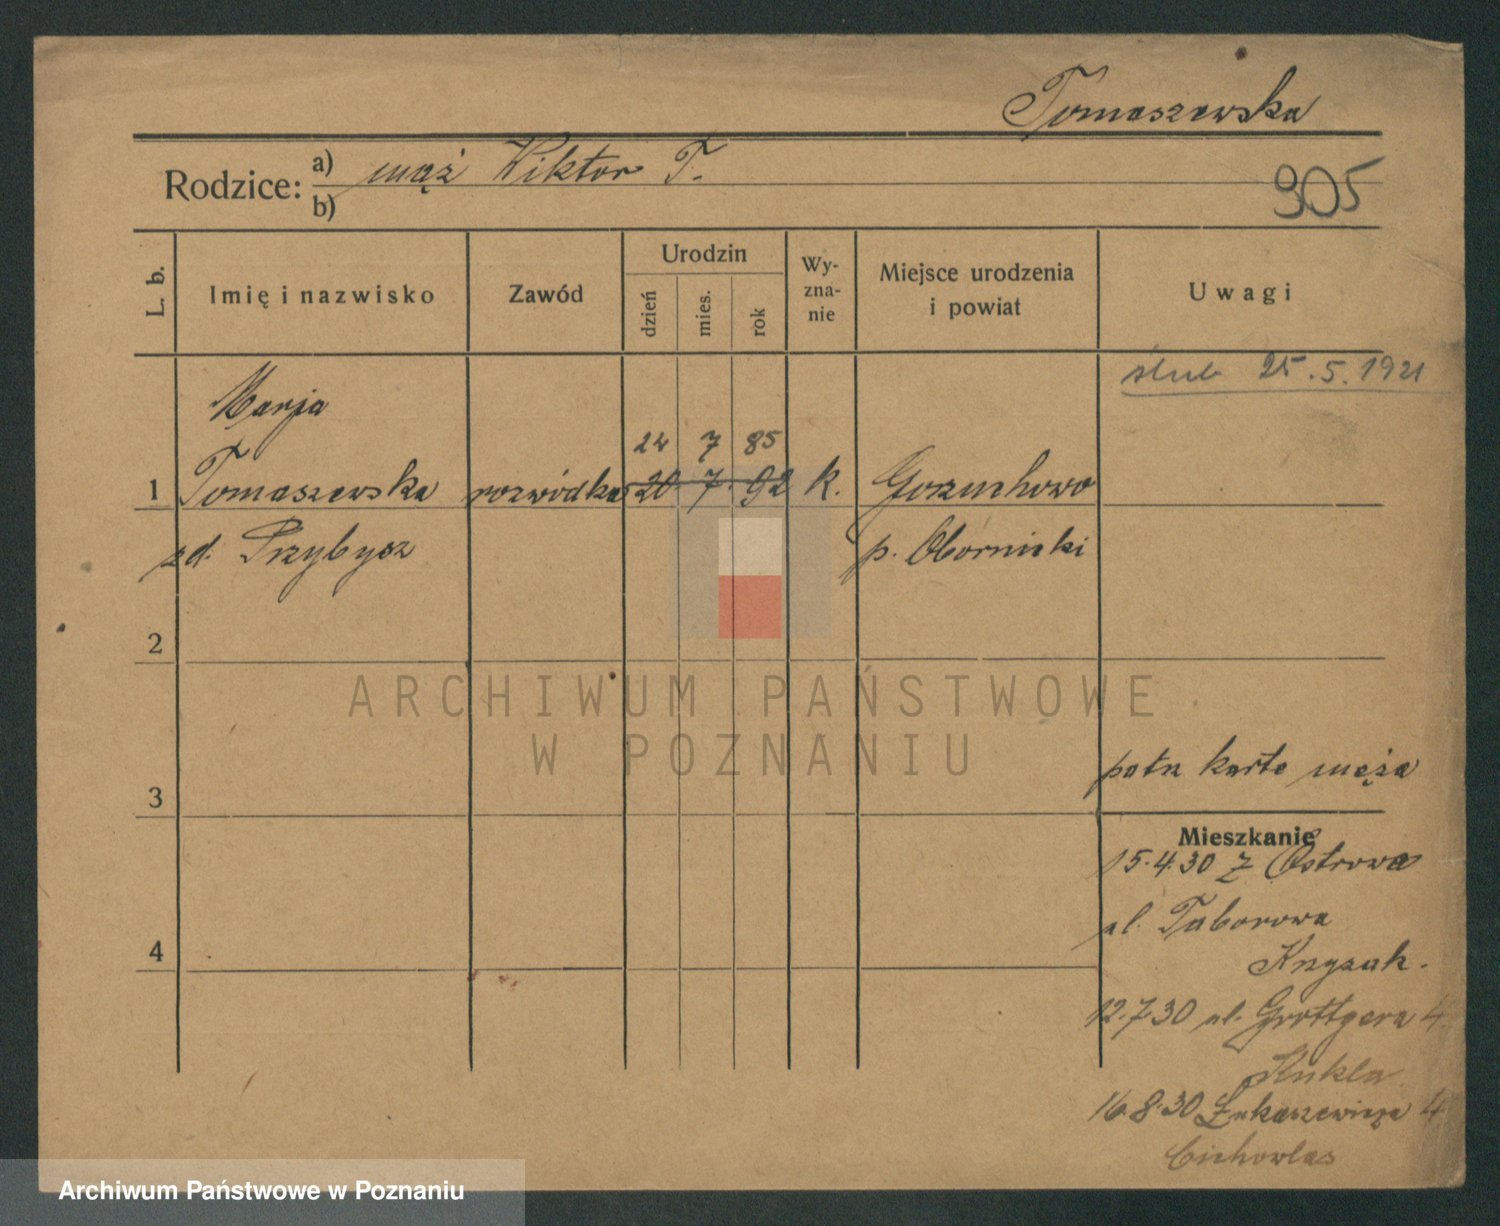 Tomaszewska
Rodzice: a) mąż Wiktor T.
b)
905
L. b.
Imię i nazwisko
Zawód
Urodzin
dzień
mies.
rok
Wy-
zna-
nie
Miejsce urodzenia
i powiat
Uwagi
ślub 25.5.1921
Marja
24 7 85
1 Tomaszewska rozwódka 20. 7. 92 k. Gorzuchowo
zd. Przybysz p. Obornicki
2
ARCHIWUM PAŃSTWOWE
W POZNANIU
patrz kartę męża
3
Mieszkanie
15.4.30 z Ostrowa
ul. Taborowa
4
Krzyżak.
12.7.30 ul. Grottgera 4
Kukla
16.8.30 Łukaszewicza 4
Cichowlas
Archiwum Państwowe w Poznaniu